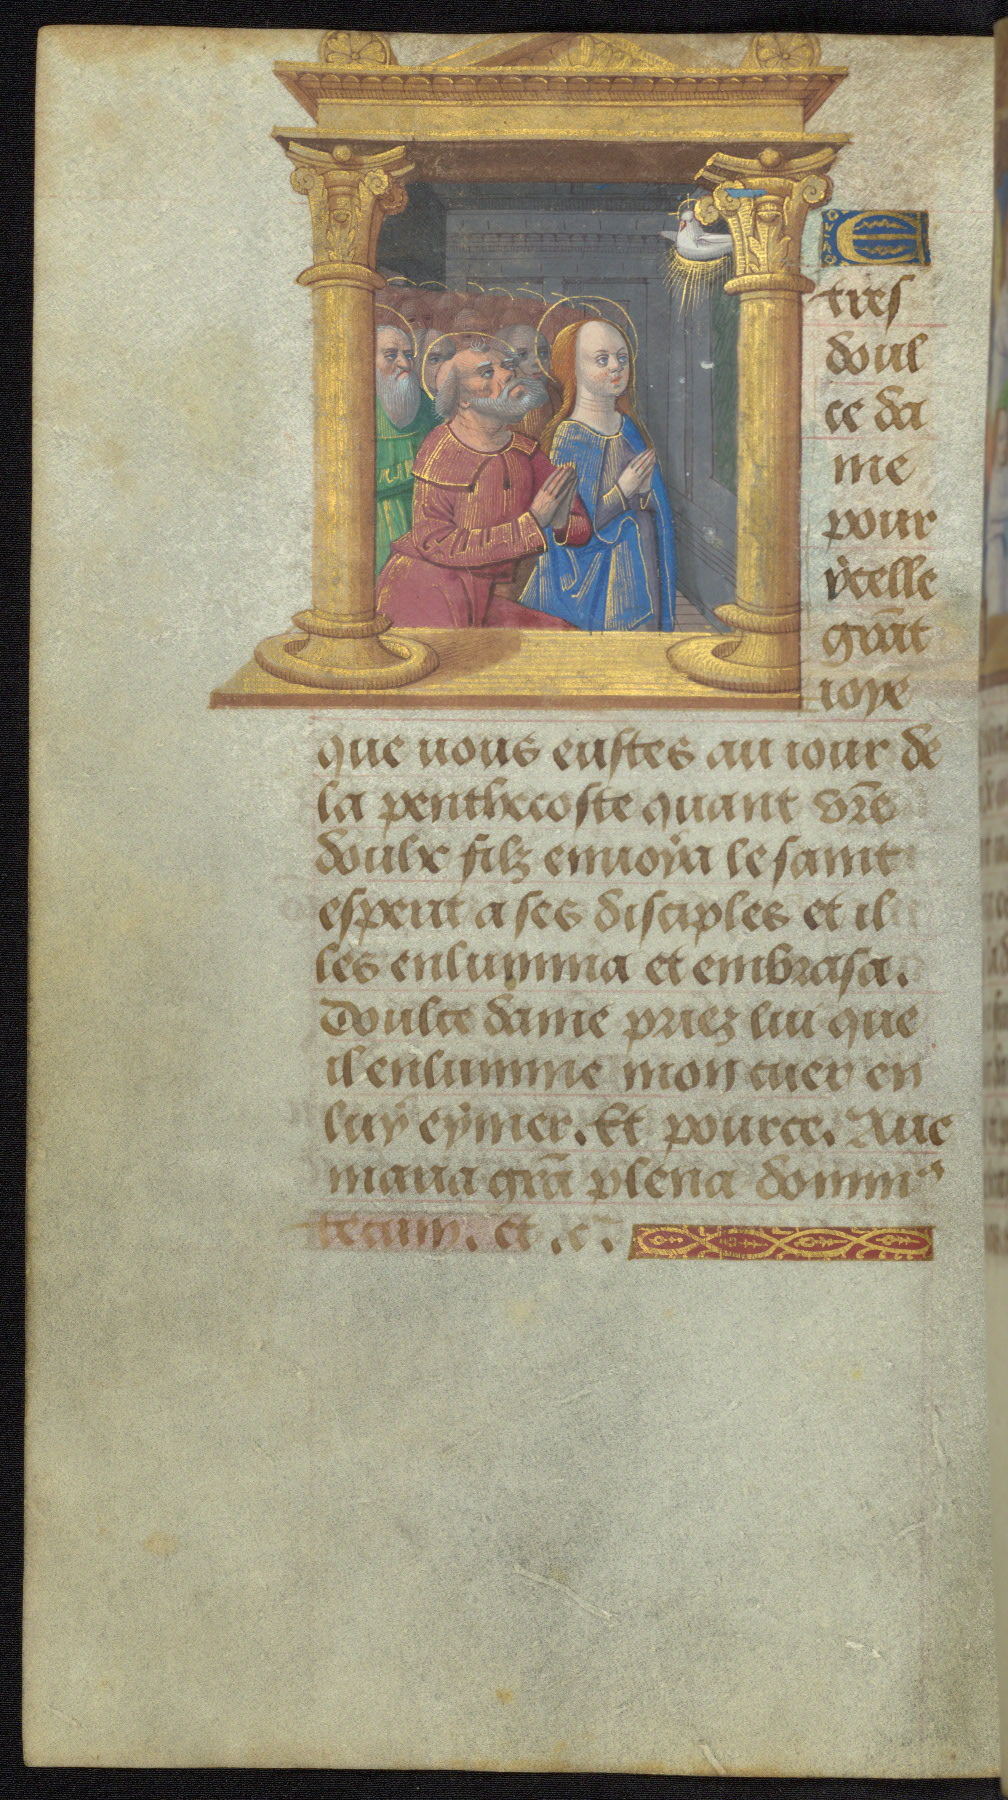 E
tres
doul
ce da
me
pour
ycelle
grãt
ioye
que uous eustes au iour de
la penthecoste quant vr̃e
doulx filz enuoya le saint
esperit a ses disciples et il
les enlumina et embrasa.
Doulce dame priez lui que
il enlumine mon cuer en
luy eymer. Et pource. Aue
maria gr̃a plena domin⁹
tecum. et .c̃.